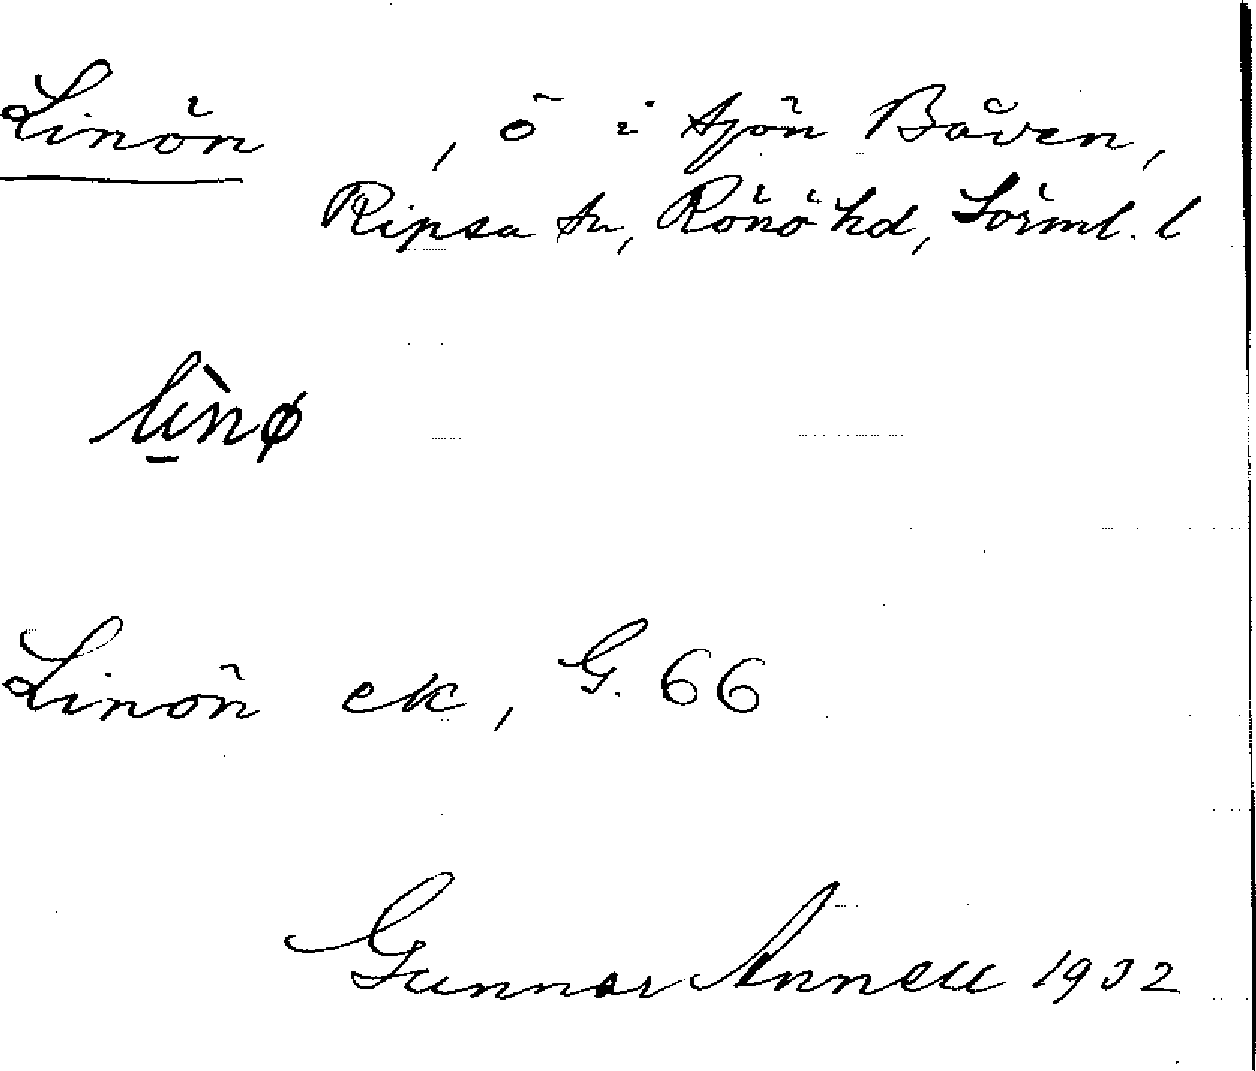 Linön, ö i sjön Båven,
Ripsa sn, Rönö hd, Sörml. l
lìnø
Linön ek, G. 66
Gunnar Annell 1932